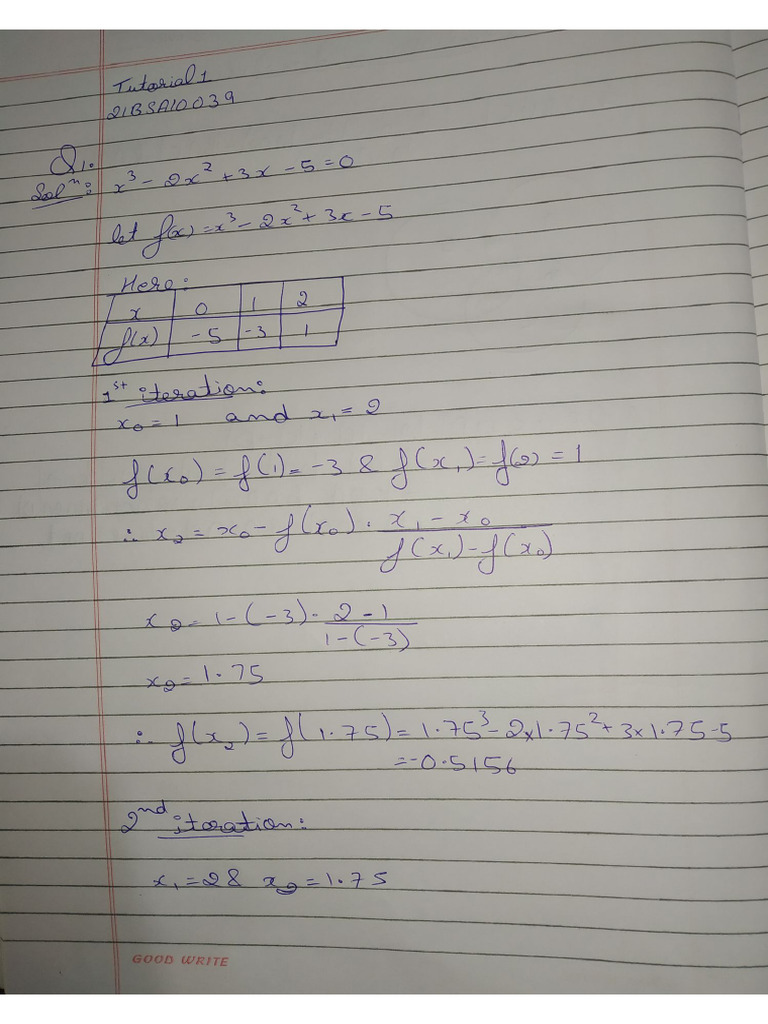 Tutorial 1
21BSA10039
Q1.
Solⁿ: x³ - 2x² + 3x - 5 = 0
let f(x) = x³ - 2x² + 3x - 5
Here:
x 0 1 2
f(x) -5 -3 1
1st iteration:
x₀ = 1 and x₁ = 2
f(x₀) = f(1) = -3 & f(x₁) = f(2) = 1
∴ x₂ = x₀ - f(x₀) · (x₁ - x₀)/(f(x₁) - f(x₀))
x₂ = 1 - (-3) · (2 - 1)/(1 - (-3))
x₂ = 1.75
∴ f(x₂) = f(1.75) = 1.75³ - 2×1.75² + 3×1.75 - 5
= -0.5156
2nd itoration:
x₁ = 2 & x₂ = 1.75
GOOD WRITE